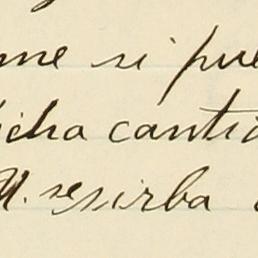 me si pue
icha cantid
U. se sirba